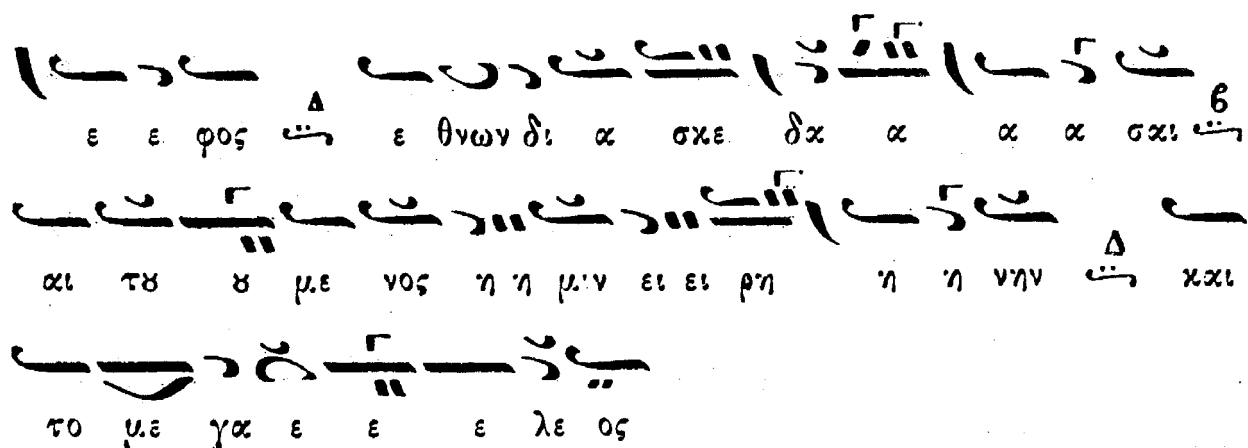 Δ β
ε ε φος ε θνων δι α σκε δα α α α σαι
Δ
αι τȣ ȣ με νος η η μιν ει ει ρη η η νην και
το με γα ε ε ε λε ος